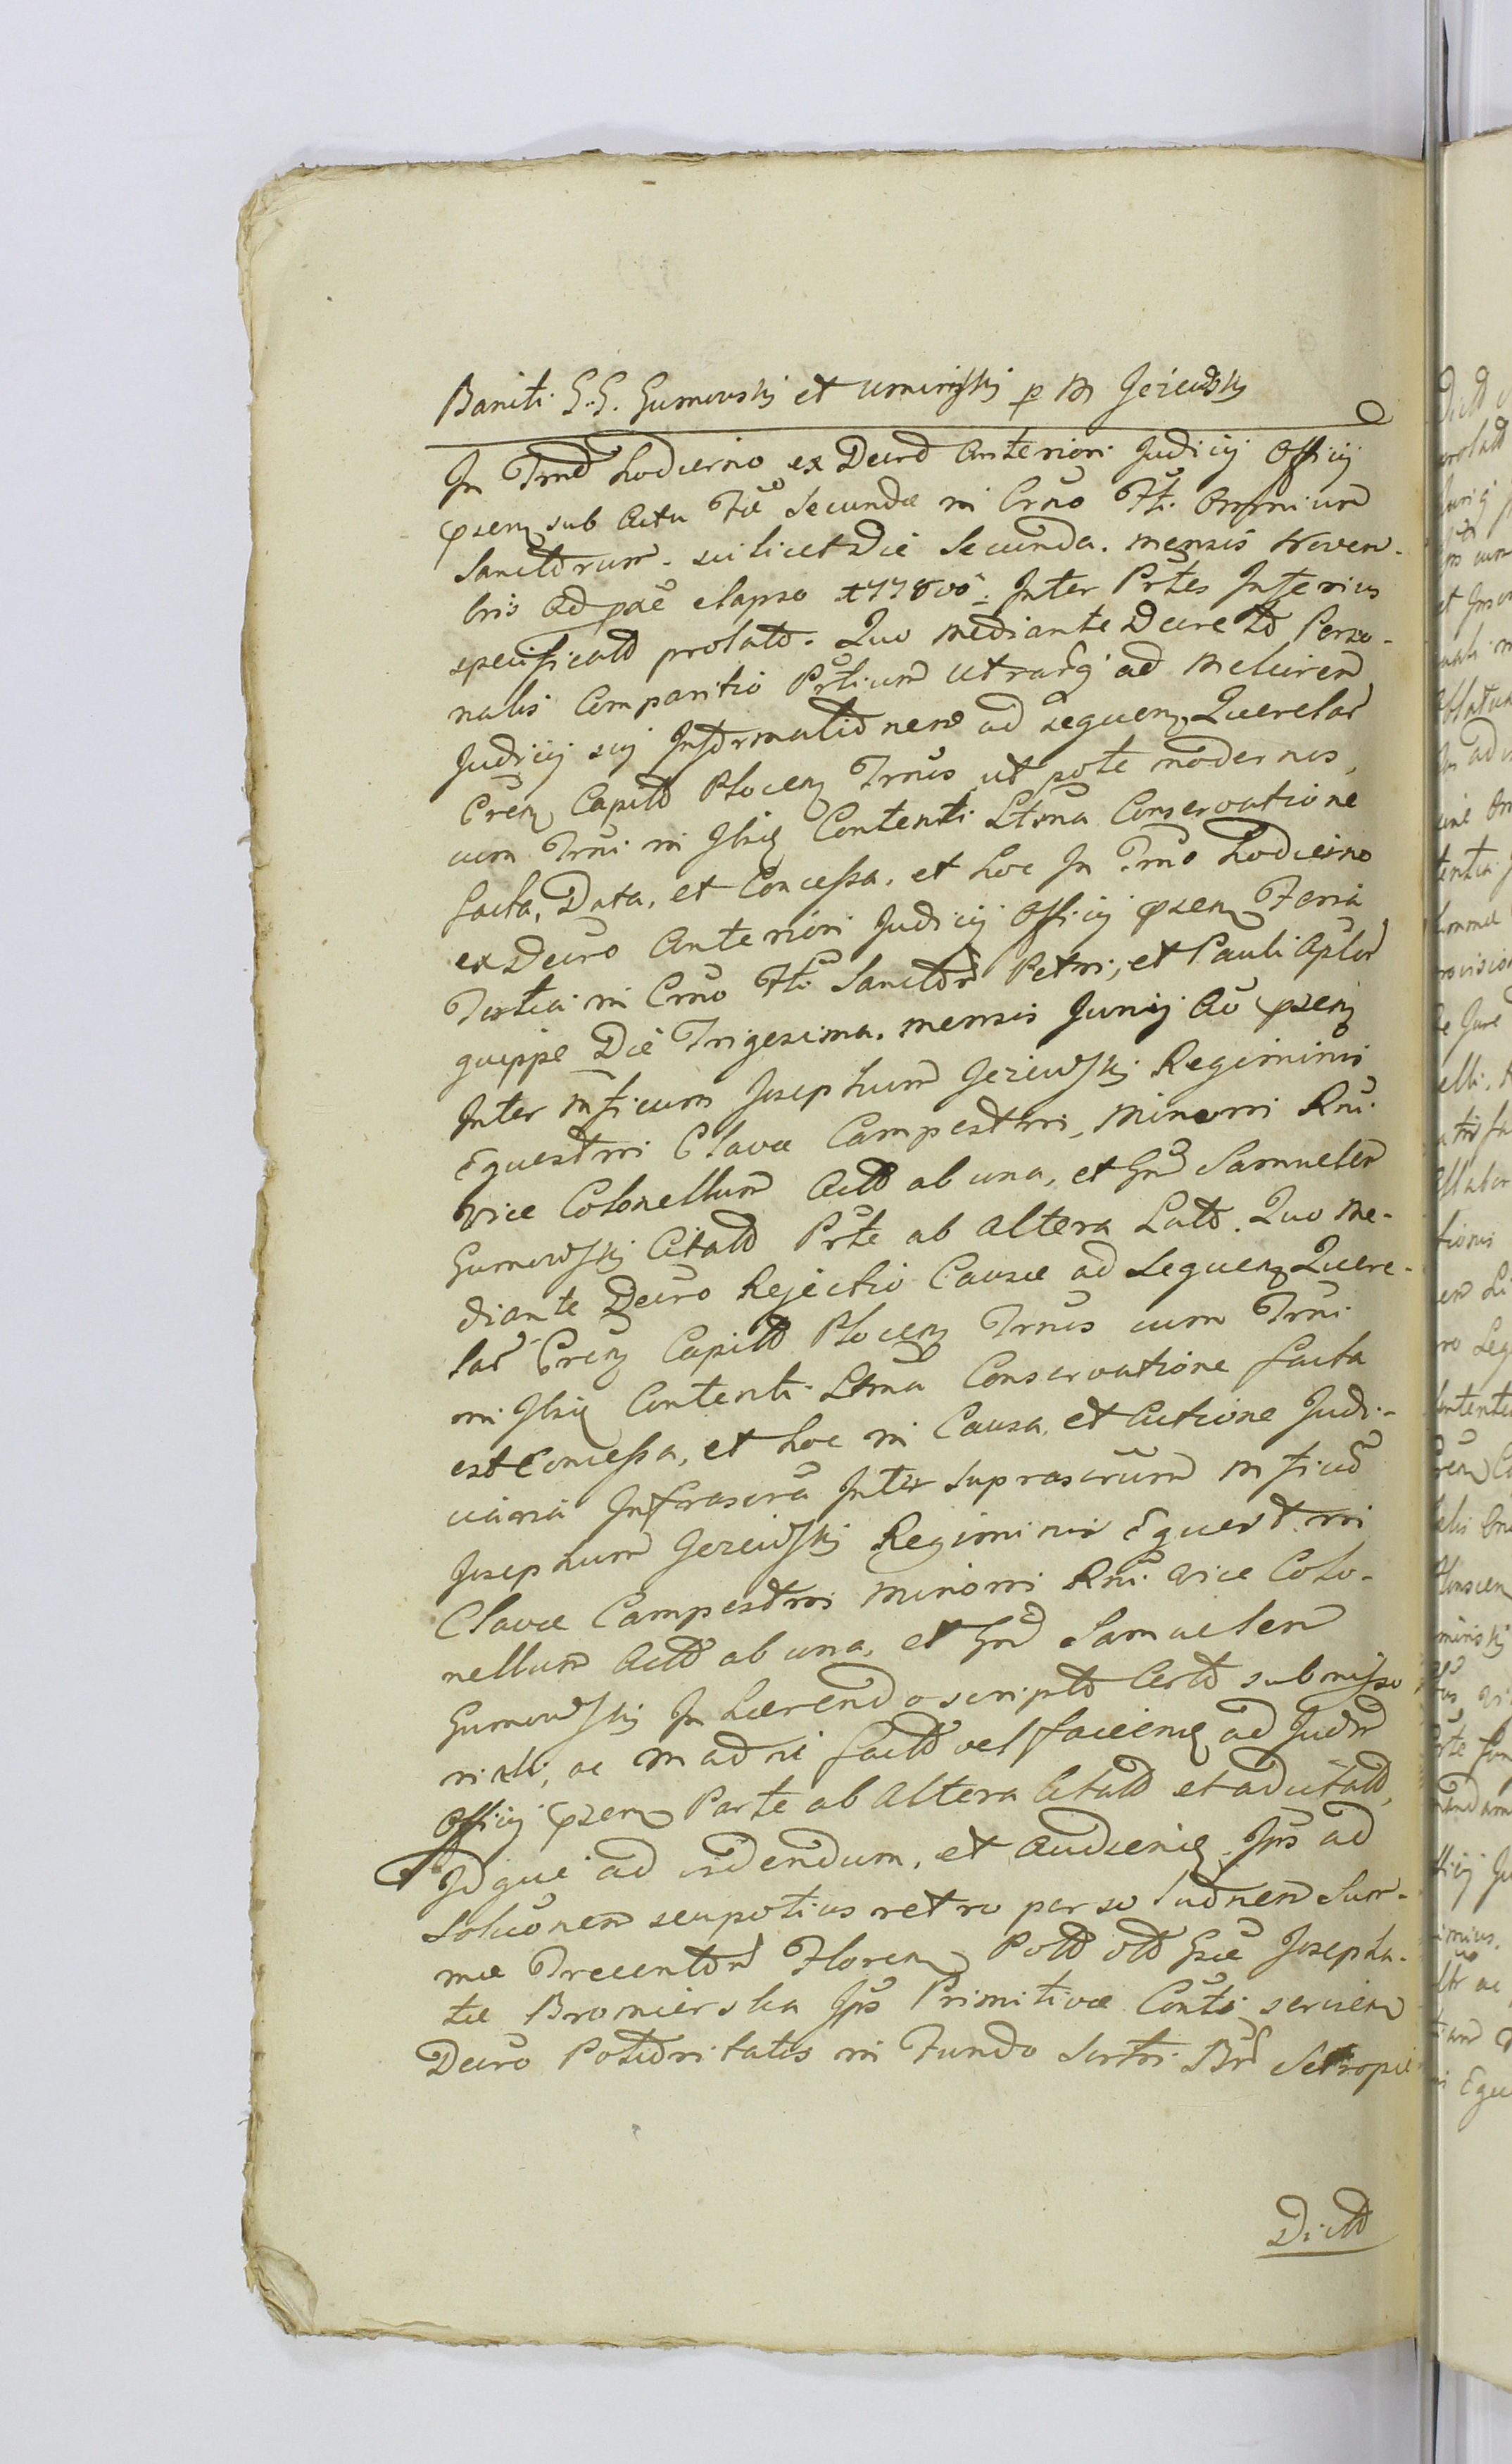 Baniti G.G. Gumovskij et uminskij p M Jeziewskij
In Trno hodierno ex Decro Anteriori Judicij Officij
pseny sub Actu Fae Secundae in Crno Fti. Omnium
Sanctorum. scilicet Die Secunda. mensis Novem-
bris Ad pae elapso 1778vo. Inter Prtes Inferius
specificato prolato. Quo mediante Decreto Perso-
nalis Comparitio Prtium utrarq ad meliorem
Judicij sui Informationem ad sequeny Querelar
Creny Capitlo Ploceny Trnus, ut pote modernus,
cum Trni in Ibiq Contenti Ltma Conservatione
facta, Data, et Concessa, et hoc In Trno hodierno
ex Decro Anteriori Judicij Officij pseny Feria
Tertia in Crno Fti Sanctor Petri, et Pauli Aplor
quippe Die Trigesima. mensis Junij Ao pseny
Inter Mficum Josephum Jeziewskij Regiminis
Equestrri Clavae Campestrri, Minorri Rni
vice Colonellum Acto ab una, et Gnd Samuelem
Gumowskij Citato Prte ab altera Lato. Quo me-
diante Decro Rejectio Causae ad Sequeny Quere-
lar Creny Capitlo Ploceny Trnus cum Trni
in Ibiq Contenti Ltma Conservatione facta
est Concessa, et hoc in Causa, et Actione Judi-
ciaria Infrascra Inter Suprascrum Mficu
Josephum Jeziewskij Regiminis Equestrri
Clavae Campestrri Minorri Rni vice Colo-
nellum Acto ab una, et Gnd Samuelem
Gumowskij In haerendo scripto Certo submisso
nixti, ac Madni facto vel facienq ad Judm
Officij pseny Parte ab Altera Citato et adcitato,
Idque ad videndum, et Audienq. Ips ad
Solucionem seu potius retro persoludnem Sum-
mae Trecentor Floreny Polo olo Gsae Josepha-
tae Bromierska Ips Primitivae Conto servieny
Decro Potioritatis in Fundo Sortri Bnr Setropie
Dicto